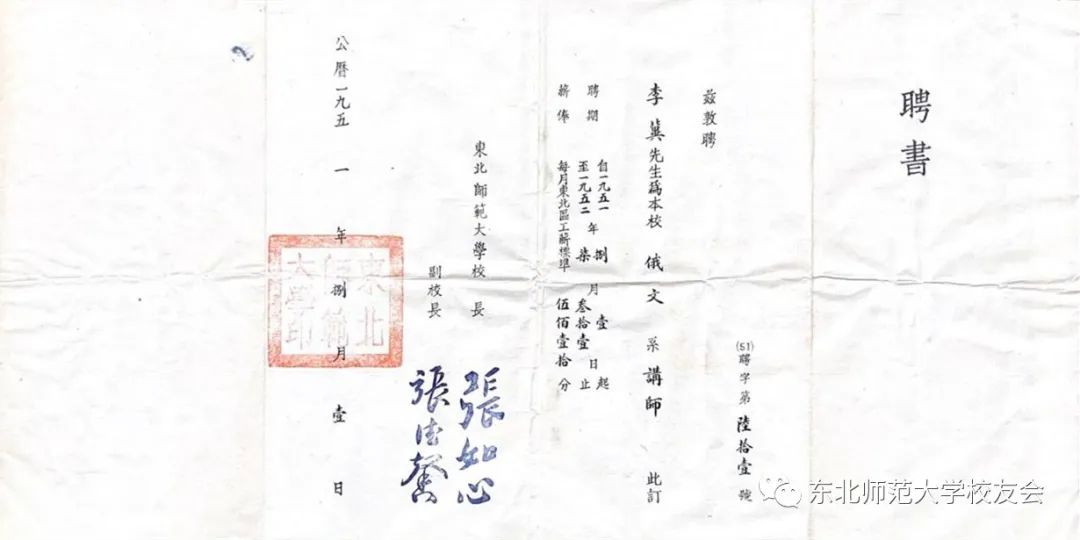 聘書
(51)聘字第陸拾壹號
茲敦聘
李冀先生爲本校俄文系講師此訂
聘期 自一九五一年捌月壹日起
至一九五二年柒月叁拾壹日止
薪俸 每月東北區工薪標準伍佰壹拾分
東北師範大學校長 張如心
副校長 張德馨
公曆一九五一年捌月壹日
東北師範大學印
东北师范大学校友会